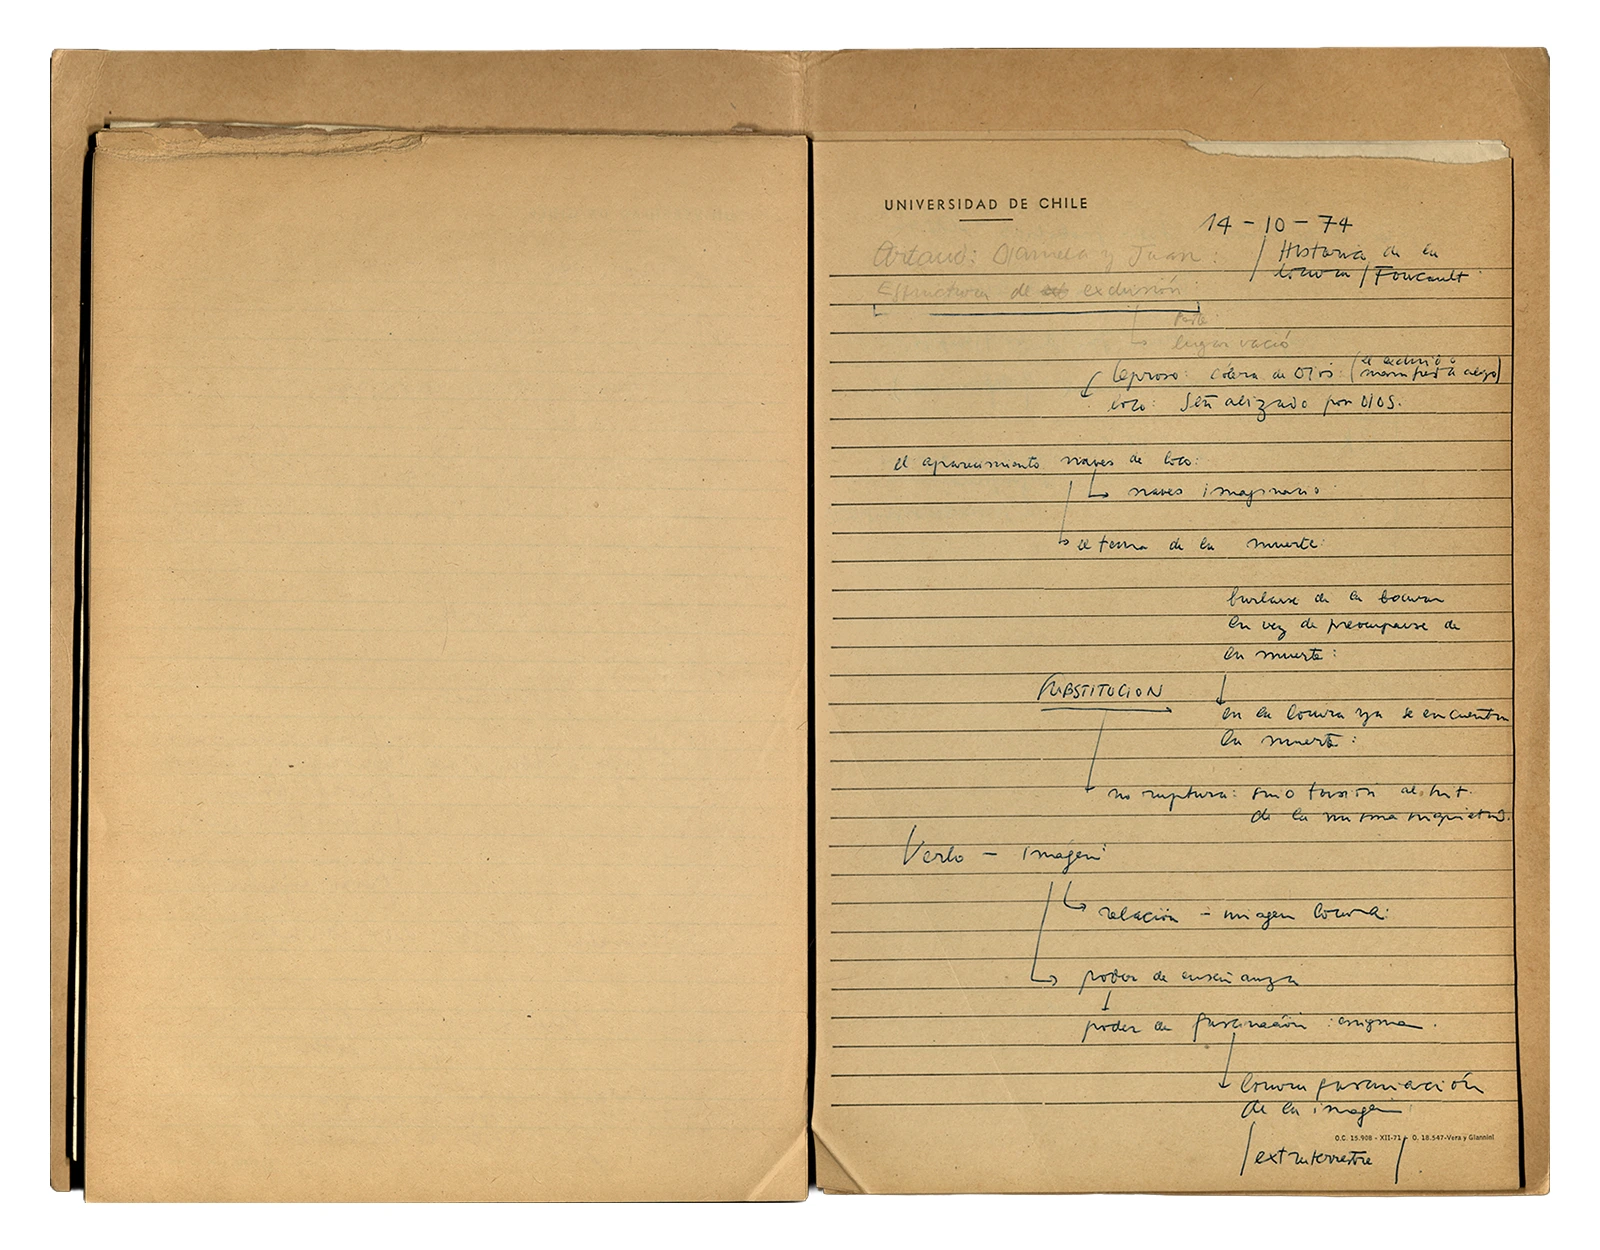 UNIVERSIDAD DE CHILE
14-10-74
Artaud: Diamela y Juan: / Historia de la
locura / Foucault
Estructura de exclusión:
Peste
lugar vacío
leproso: cólera de Dios: (el excluido manifiesta algo)
loco: Señalizado por DIOS.
el aparecimiento naves de loco:
naves imaginario
el tema de la muerte:
burlarse de la locura
en vez de preocuparse de
la muerte:
SUBSTITUCION
en la locura ya se encuentra
la muerte:
no ruptura: sino torsión al int.
de la misma inquietud.
Verbo - imagen:
relación - imagen locura:
poder de enseñanza
poder de fascinación: enigma.
locura fascinación
de la imagen
O.C. 15.908 - XII-71 - O. 18.547-Vera y Giannini
/extraterrestre/